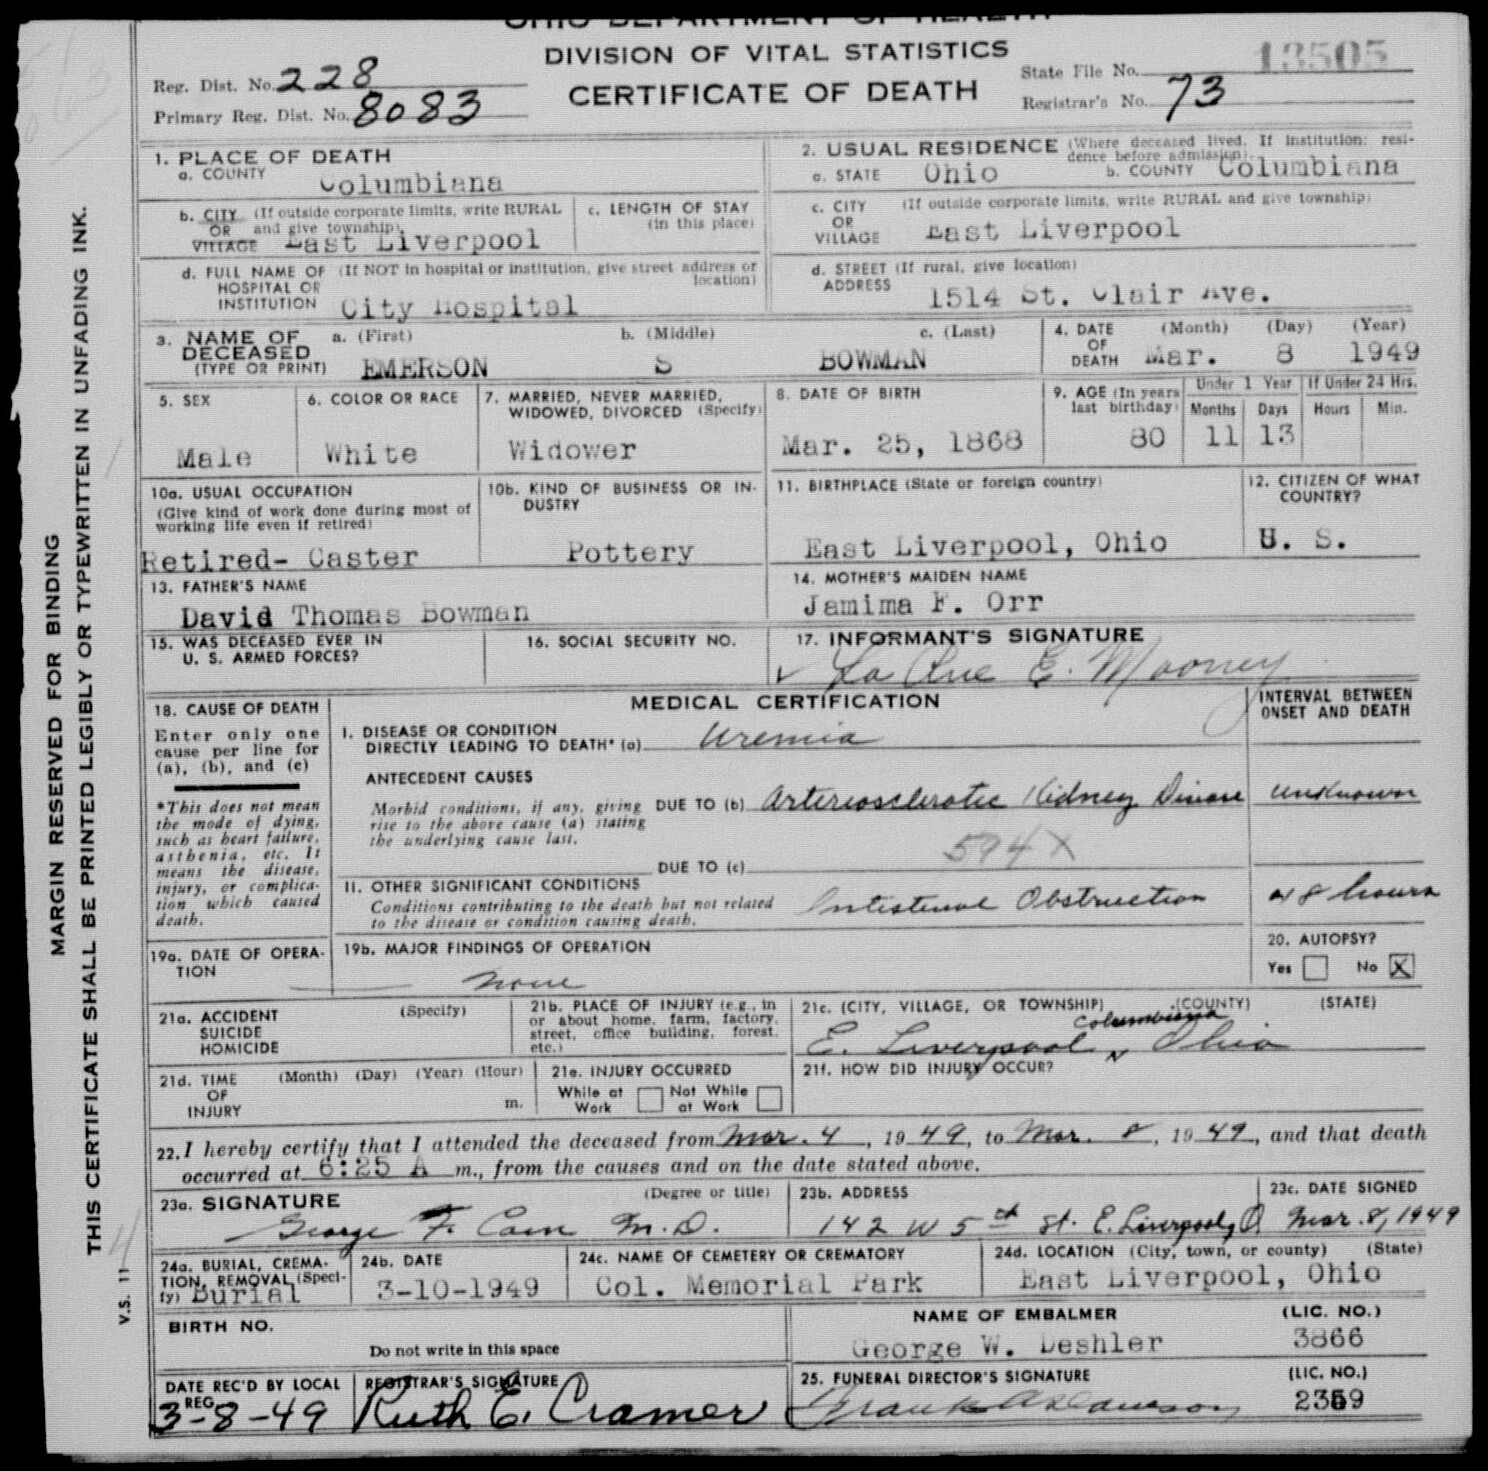 OHIO DEPARTMENT OF HEALTH
DIVISION OF VITAL STATISTICS
CERTIFICATE OF DEATH
Reg. Dist. No. 228
Primary Reg. Dist. No. 8083
State File No. 13505
Registrar's No. 73
MARGIN RESERVED FOR BINDING
THIS CERTIFICATE SHALL BE PRINTED LEGIBLY OR TYPEWRITTEN IN UNFADING INK.
V.S. 11
1. PLACE OF DEATH
a. COUNTY Columbiana
b. CITY OR VILLAGE (If outside corporate limits, write RURAL and give township) East Liverpool
c. LENGTH OF STAY (in this place)
d. FULL NAME OF HOSPITAL OR INSTITUTION (If NOT in hospital or institution, give street address or location) City Hospital
2. USUAL RESIDENCE (Where deceased lived. If institution: residence before admission).
a. STATE Ohio b. COUNTY Columbiana
c. CITY OR VILLAGE (If outside corporate limits, write RURAL and give township) East Liverpool
d. STREET ADDRESS (If rural, give location) 1514 St. Clair Ave.
3. NAME OF DECEASED (TYPE OR PRINT) a. (First) EMERSON b. (Middle) S c. (Last) BOWMAN
4. DATE OF DEATH (Month) (Day) (Year) Mar. 8 1949
5. SEX Male
6. COLOR OR RACE White
7. MARRIED, NEVER MARRIED, WIDOWED, DIVORCED (Specify) Widower
8. DATE OF BIRTH Mar. 25, 1868
9. AGE (In years last birthday) 80 Under 1 Year Months 11 Days 13 If Under 24 Hrs. Hours Min.
10a. USUAL OCCUPATION (Give kind of work done during most of working life even if retired) Retired- Caster
10b. KIND OF BUSINESS OR INDUSTRY Pottery
11. BIRTHPLACE (State or foreign country) East Liverpool, Ohio
12. CITIZEN OF WHAT COUNTRY? U. S.
13. FATHER'S NAME David Thomas Bowman
14. MOTHER'S MAIDEN NAME Jamima F. Orr
15. WAS DECEASED EVER IN U. S. ARMED FORCES?
16. SOCIAL SECURITY NO.
17. INFORMANT'S SIGNATURE La Rue E. Mooney
MEDICAL CERTIFICATION
INTERVAL BETWEEN ONSET AND DEATH
18. CAUSE OF DEATH
Enter only one cause per line for (a), (b), and (c)
*This does not mean the mode of dying, such as heart failure, asthenia, etc. It means the disease, injury, or complication which caused death.
I. DISEASE OR CONDITION DIRECTLY LEADING TO DEATH* (a) Uremia
ANTECEDENT CAUSES
Morbid conditions, if any, giving rise to the above cause (a) stating the underlying cause last.
DUE TO (b) Arteriosclerotic Kidney Disease unknown
594X
DUE TO (c)
II. OTHER SIGNIFICANT CONDITIONS
Conditions contributing to the death but not related to the disease or condition causing death.
Intestinal Obstruction 48 hours
19a. DATE OF OPERATION
19b. MAJOR FINDINGS OF OPERATION
none
20. AUTOPSY?
Yes No X
21a. ACCIDENT SUICIDE HOMICIDE (Specify)
21b. PLACE OF INJURY (e.g., in or about home, farm, factory, street, office building, forest, etc.)
21c. (CITY, VILLAGE, OR TOWNSHIP) (COUNTY) (STATE)
E. Liverpool Columbiana Ohio
21d. TIME OF INJURY (Month) (Day) (Year) (Hour) m.
21e. INJURY OCCURRED
While at Work Not While at Work
21f. HOW DID INJURY OCCUR?
22. I hereby certify that I attended the deceased from Mar. 4, 1949, to Mar. 8, 1949, and that death
occurred at 6:25 A m., from the causes and on the date stated above.
23a. SIGNATURE (Degree or title) George F. Cain M.D.
23b. ADDRESS 142 W 5th St. E. Liverpool, O
23c. DATE SIGNED Mar. 8, 1949
24a. BURIAL, CREMATION, REMOVAL (Specify) Burial
24b. DATE 3-10-1949
24c. NAME OF CEMETERY OR CREMATORY Col. Memorial Park
24d. LOCATION (City, town, or county) (State) East Liverpool, Ohio
BIRTH NO.
Do not write in this space
NAME OF EMBALMER George W. Deshler
(LIC. NO.) 3866
DATE REC'D BY LOCAL REG. 3-8-49
REGISTRAR'S SIGNATURE Ruth E. Cramer
25. FUNERAL DIRECTOR'S SIGNATURE Frank A Dawson
(LIC. NO.) 2359